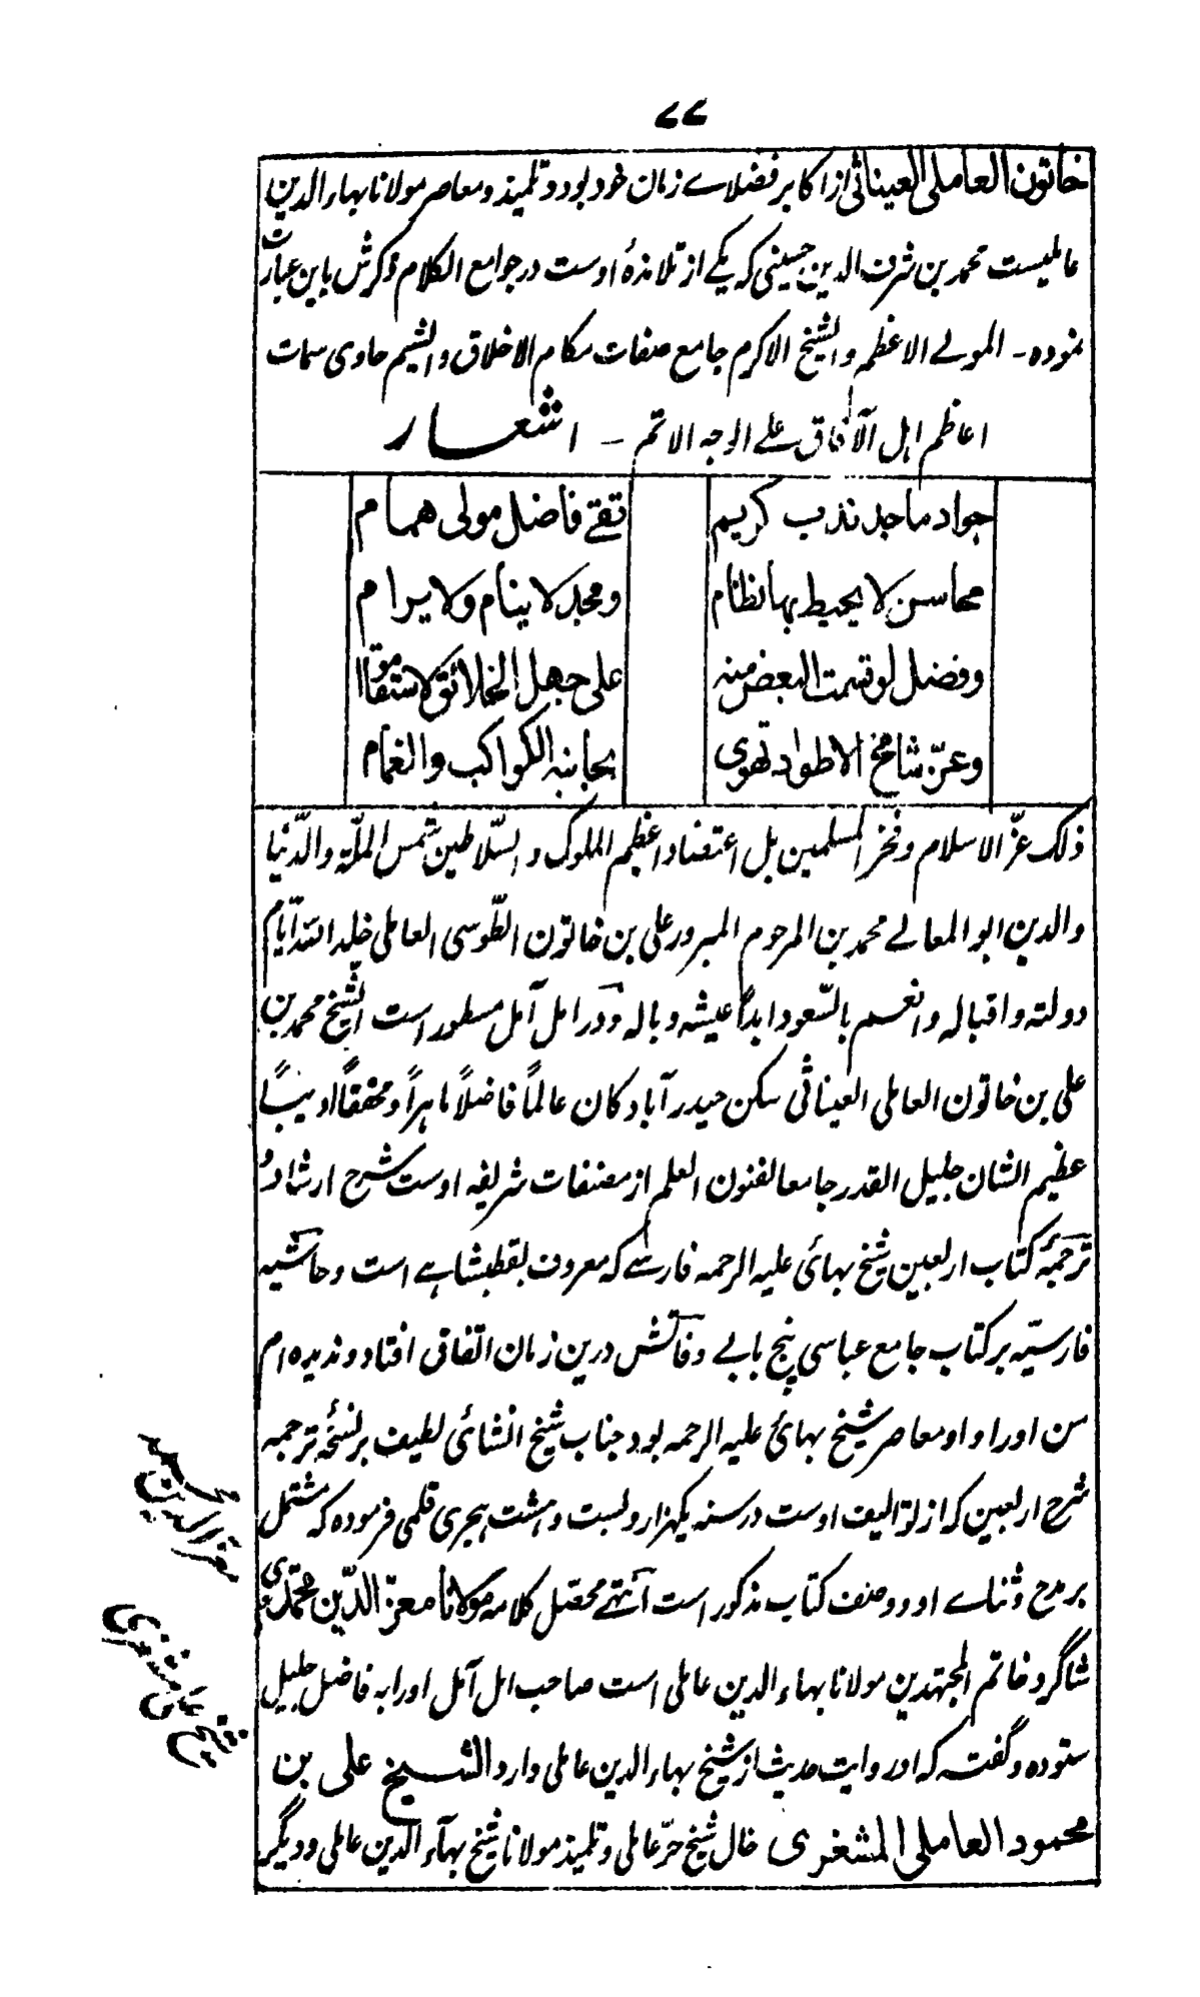 ۷۷
خاتون العاملی العیناثی از اکابر فضلاے زمان خود بود و تلمیذ و معاصر مولانا بہاء الدین
عاملیست محمد بن شرف الدین حسینی کہ یکے از تلامذۂ اوست در جوامع الکلام ذکرش باین عبارت
نمودہ ۔ المولے الاعظم والشیخ الاکرم جامع صفات مکارم الاخلاق والشیم حاوی سمات
اعاظم اہل الآفاق علے الوجہ الاتم ۔ اشعار
جواد ماجد ندب کریم تقے فاضل مولی همام
محاسن لا یحیط بها نظام ومجد لا ینام ولا یرام
وفضل لو قسمت البعض منه علی جهل الخلائق لاستقاموا
وعزّ شامخ الاطواد تهوی بجانبہ الکواکب والغمام
ذلک عزّ الاسلام و فخر المسلمین بل اعتضاد اعظم الملوک والسّلاطین شمس الملّة والدّنیا
والدین ابو المعالے محمد بن المرحوم المبرور علی بن خاتون الطّوسی العاملی خلد اللہ ایّام
دولتہ و اقبالہ وانعم بالسّعود ابداً عیشہ و بالہ و در امل آمل مسطور است الشّیخ محمد بن
علی بن خاتون العاملی العیناثی سکن حیدر آباد کان عالماً فاضلاً ماہراً و محققاً ادیباً
عظیم الشان جلیل القدر جامعا لفنون العلم از مصنفات شریفہ اوست شرح ارشاد و
ترجمۂ کتاب اربعین شیخ بہائی علیہ الرحمہ فارسے کہ معروف بقطبشاہے است و حاشیہ
فارسیّہ بر کتاب جامع عباسی پنج بابے وفاتش درین زمان اتفاق افتاد و ندیدہ ام
من اورا و او معاصر شیخ بہائی علیہ الرحمہ بود جناب شیخ انشائی لطیف بر نسخۂ ترجمہ
شرح اربعین کہ از توالیف اوست در سنہ یکہزار و بست و ہشت ہجری قلمی فرمودہ کہ مشتمل
بر مدح و ثناے او و وصف کتاب مذکور است انتہے محصّل کلامہ مولانا معزّ الدّین محمّد
شاگرد خاتم المجتہدین مولانا بہاء الدین عاملی است صاحب امل آمل اورا بہ فاضل جلیل
ستودہ و گفتہ کہ او روایت حدیث از شیخ بہاء الدین عاملی دارد الشیخ علی بن
محمود العاملی المشغری خال شیخ حرّ عاملی و تلمیذ مولانا شیخ بہآء الدین عاملی و دیگر
معز الدین محمد
شیخ علی مشغری